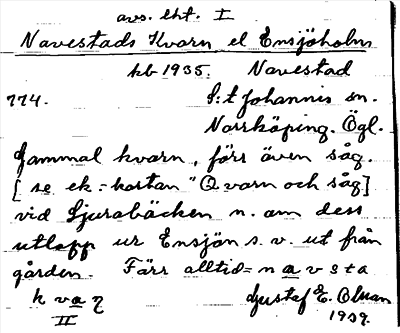 avs. lht. I
Navestads Kvarn el Ensjöholm
kb 1935. Navestad
774. S:t Johannis sn.
Norrköping. Ögl.
Gammal kvarn, förr även såg.
[se ek=kartan "Qvarn och såg]
vid Ljurabäcken n. om dess
utlopp ur Ensjön s.v. ut från
gården. Färr alltid=navsta
kvaη Gustaf E. Olsson
II 1939.